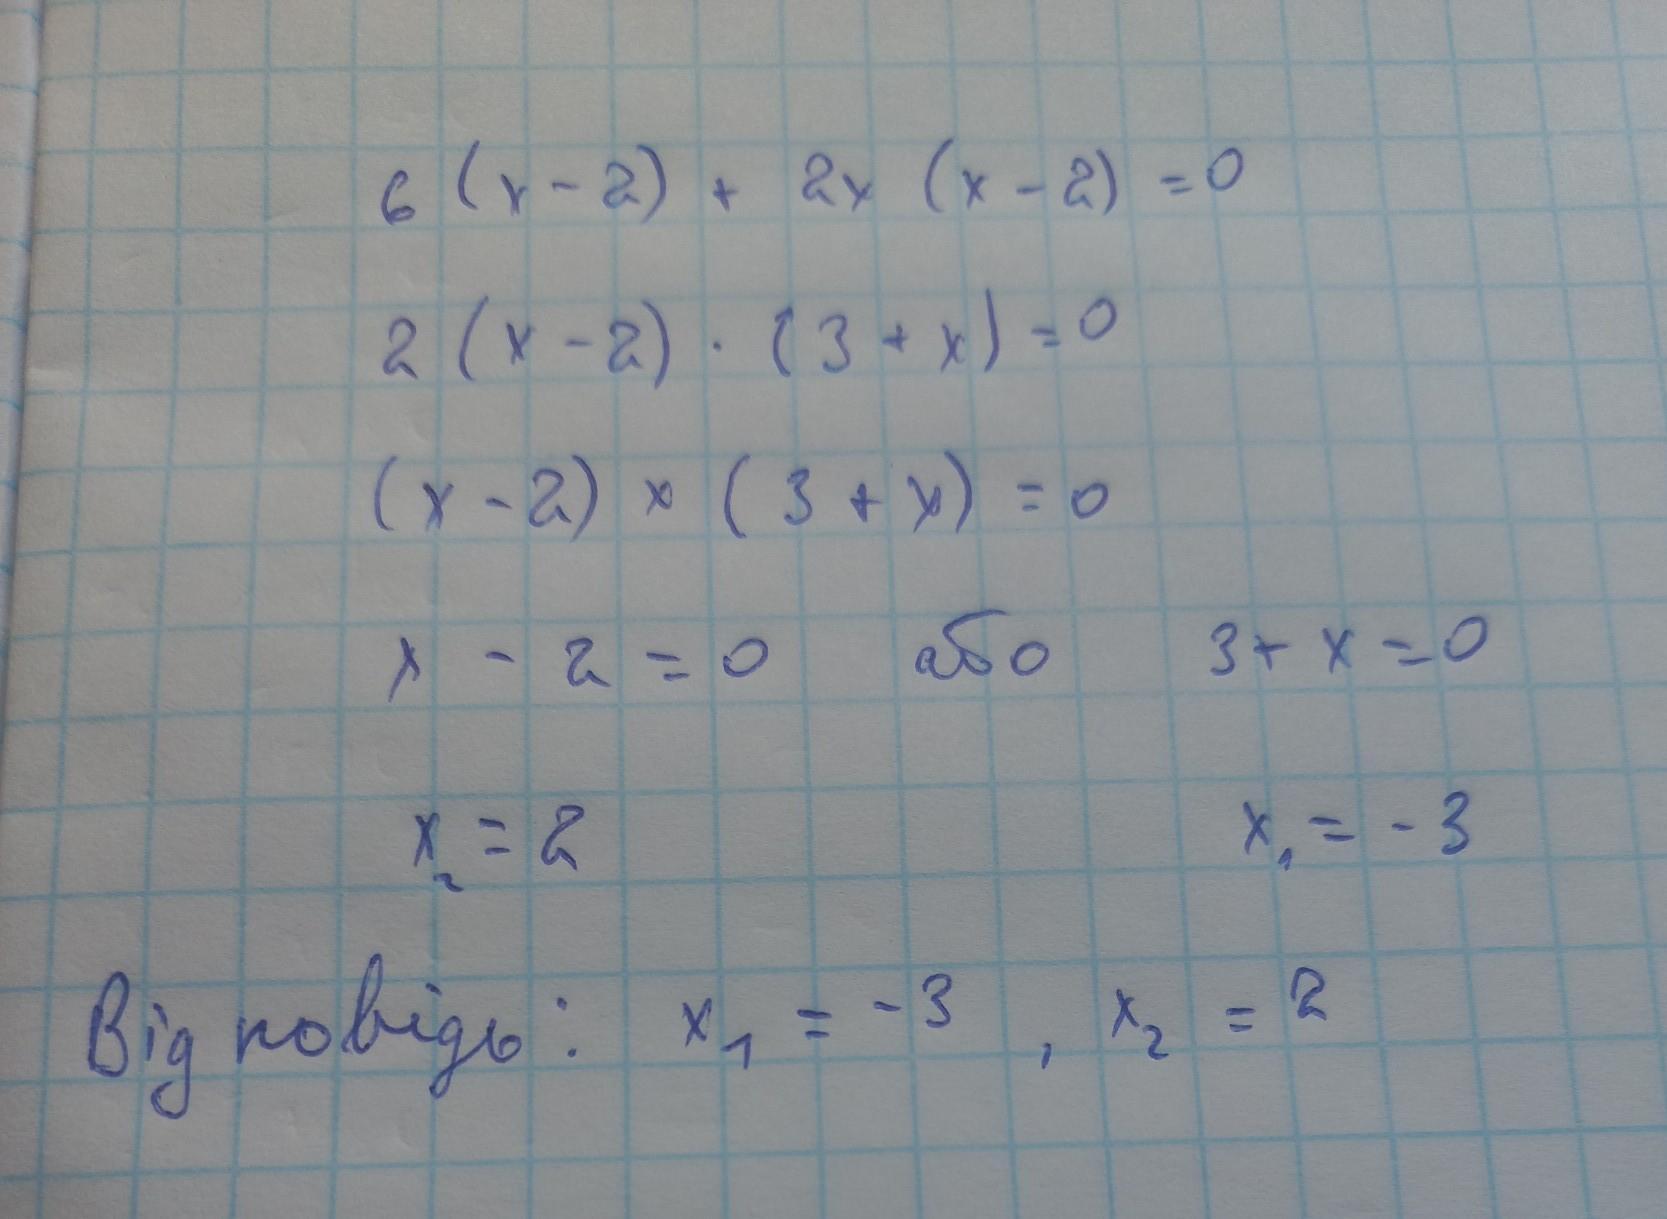 6 (x - 2) + 2x (x - 2) = 0
2 (x - 2) · (3 + x) = 0
(x - 2) × (3 + x) = 0
x - 2 = 0 або 3 + x = 0
x₂ = 2 x₁ = - 3
Відповідь: x₁ = - 3 , x₂ = 2